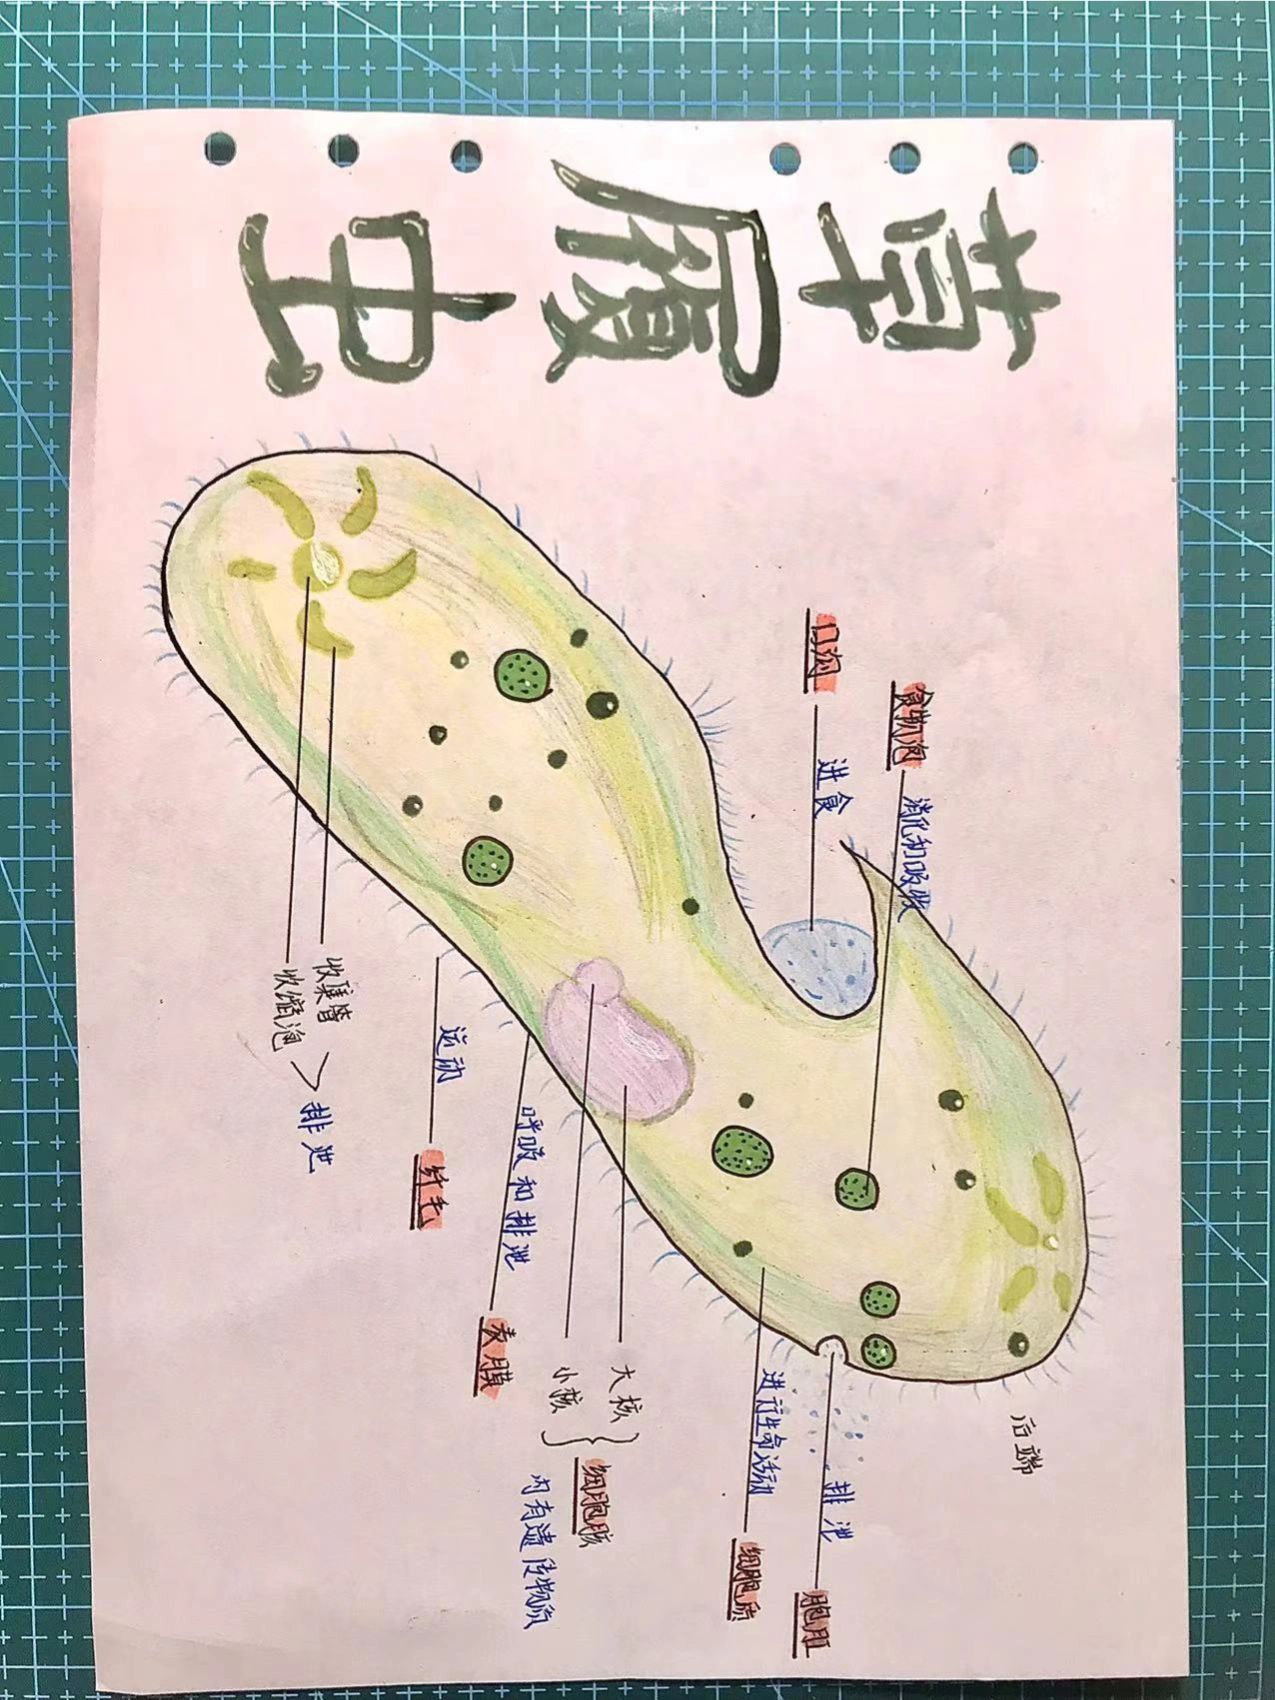 草履虫
后端
食物泡 消化和吸收
口沟 进食
排泄 胞肛
进行生命活动 细胞质
大核
小核
细胞核
内有遗传物质
呼吸和排泄 表膜
运动 纤毛
收集管
收缩泡
排泄